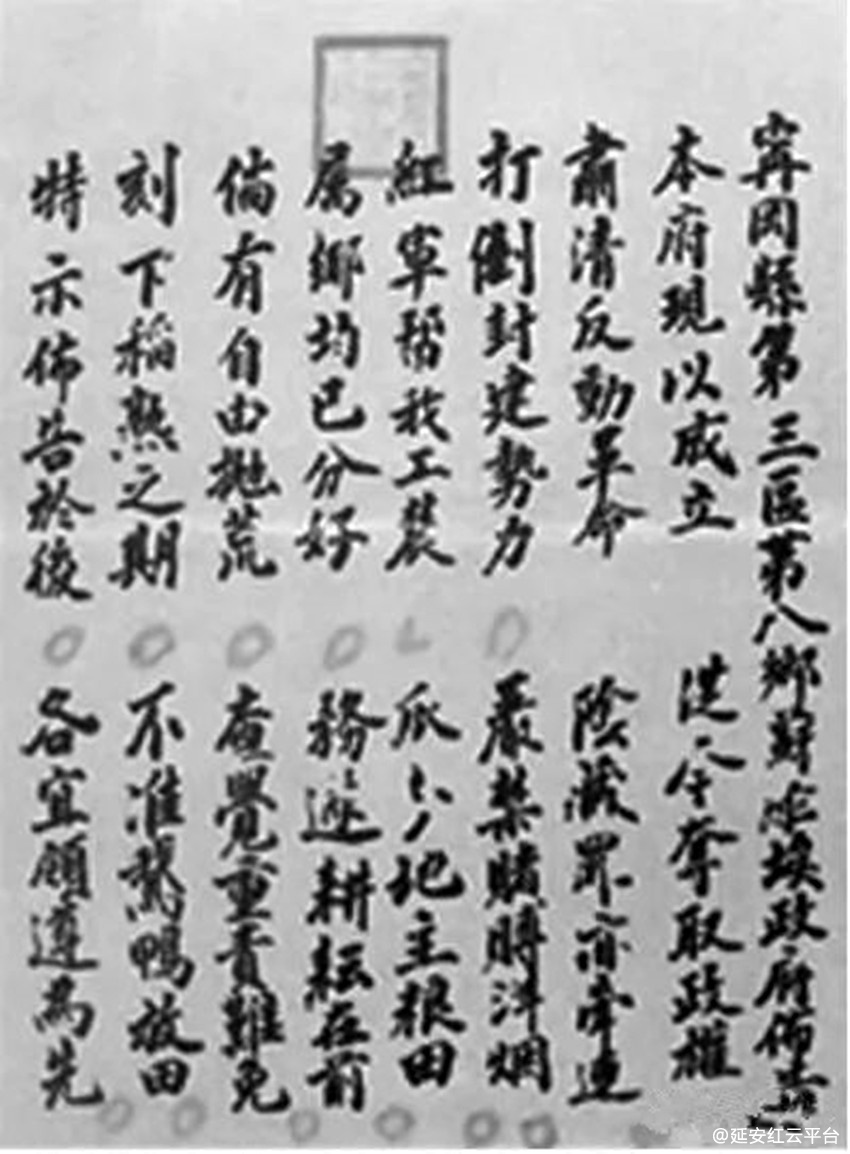 甯冈縣第三區第八鄉蘇維埃政府佈告
本府現以成立 從今奪取政權
肅清反動革命 陰藏罪亦牽連
打倒封建勢力 嚴禁賭博洋烟
紅軍幫我工農 瓜分地主粮田
属鄉均已分好 務遊耕耘在前
倘有自由拋荒 查覺重責難免
刻下稻熟之期 不准鵞鴨放田
特示佈告於後 各宜領遵為先
@延安红云平台